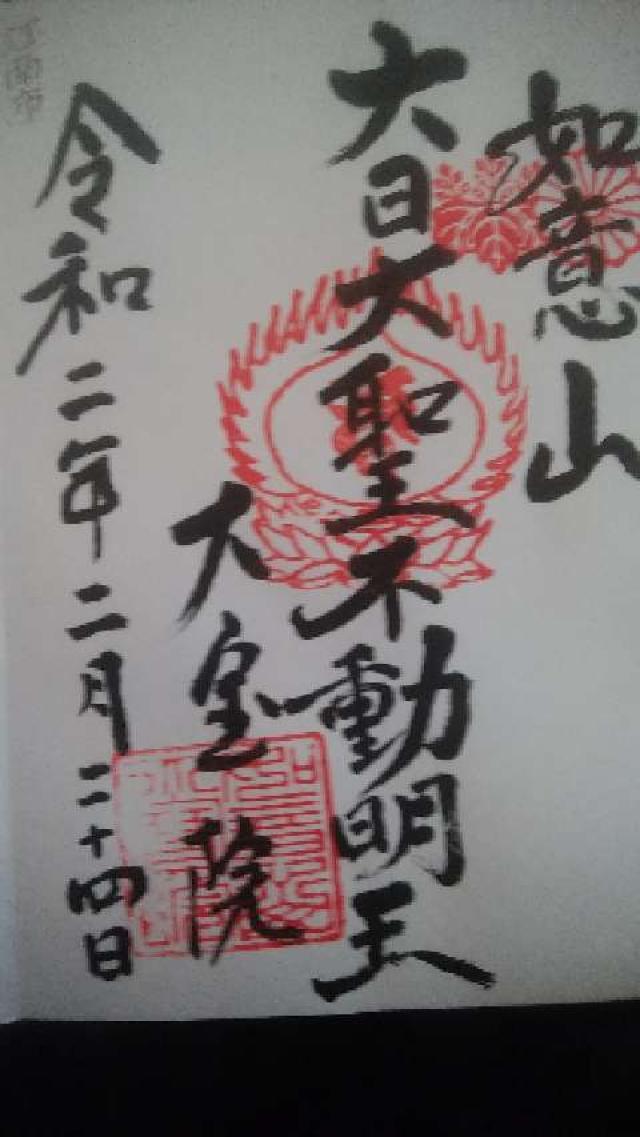 如意山
大日大聖不動明王
大皇院
令和二年二月二十四日